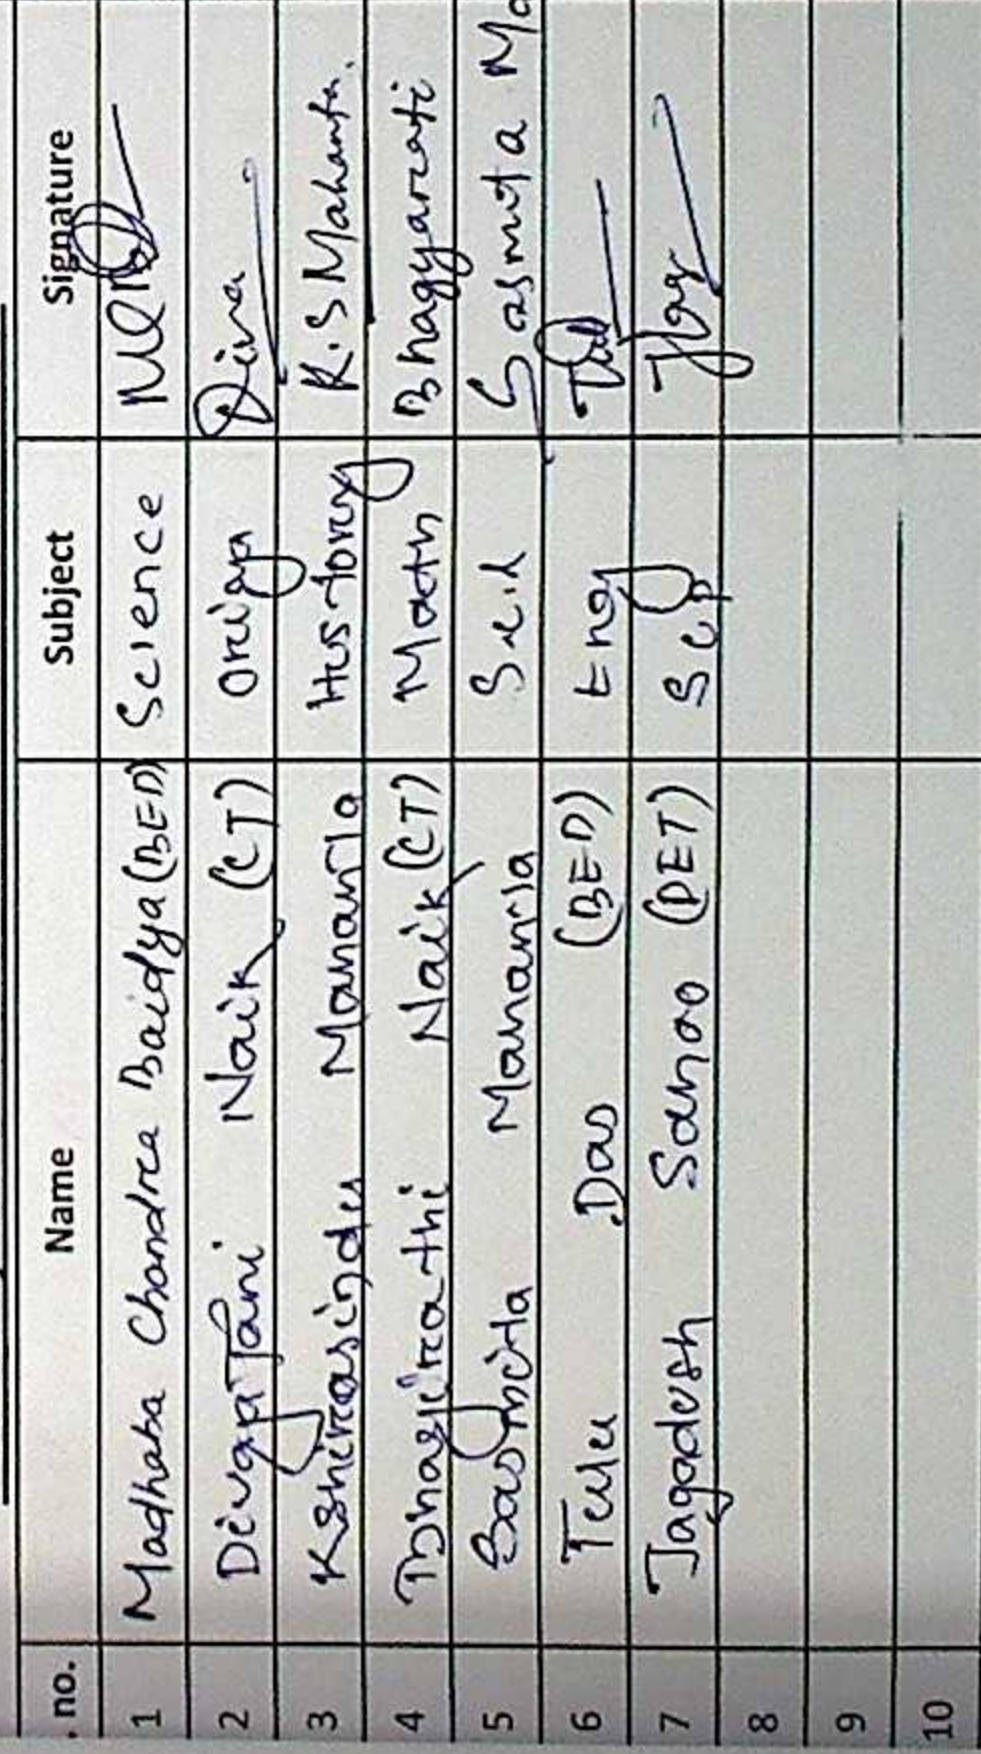 . no. Name Subject Signature
1 Madhaba Chandra Baidya (BED) Science
2 Naik (CT) Oriya
3 Kshirasindu Mahanta History K. S Mahanta.
4 Bhagirathi Naik (CT) Math Bhagyarati
5 Sasmita Mahanta Sasmita
6 Tulu Das (BED) Eng
7 Jagadesh Sahoo (PET)
8
9
10